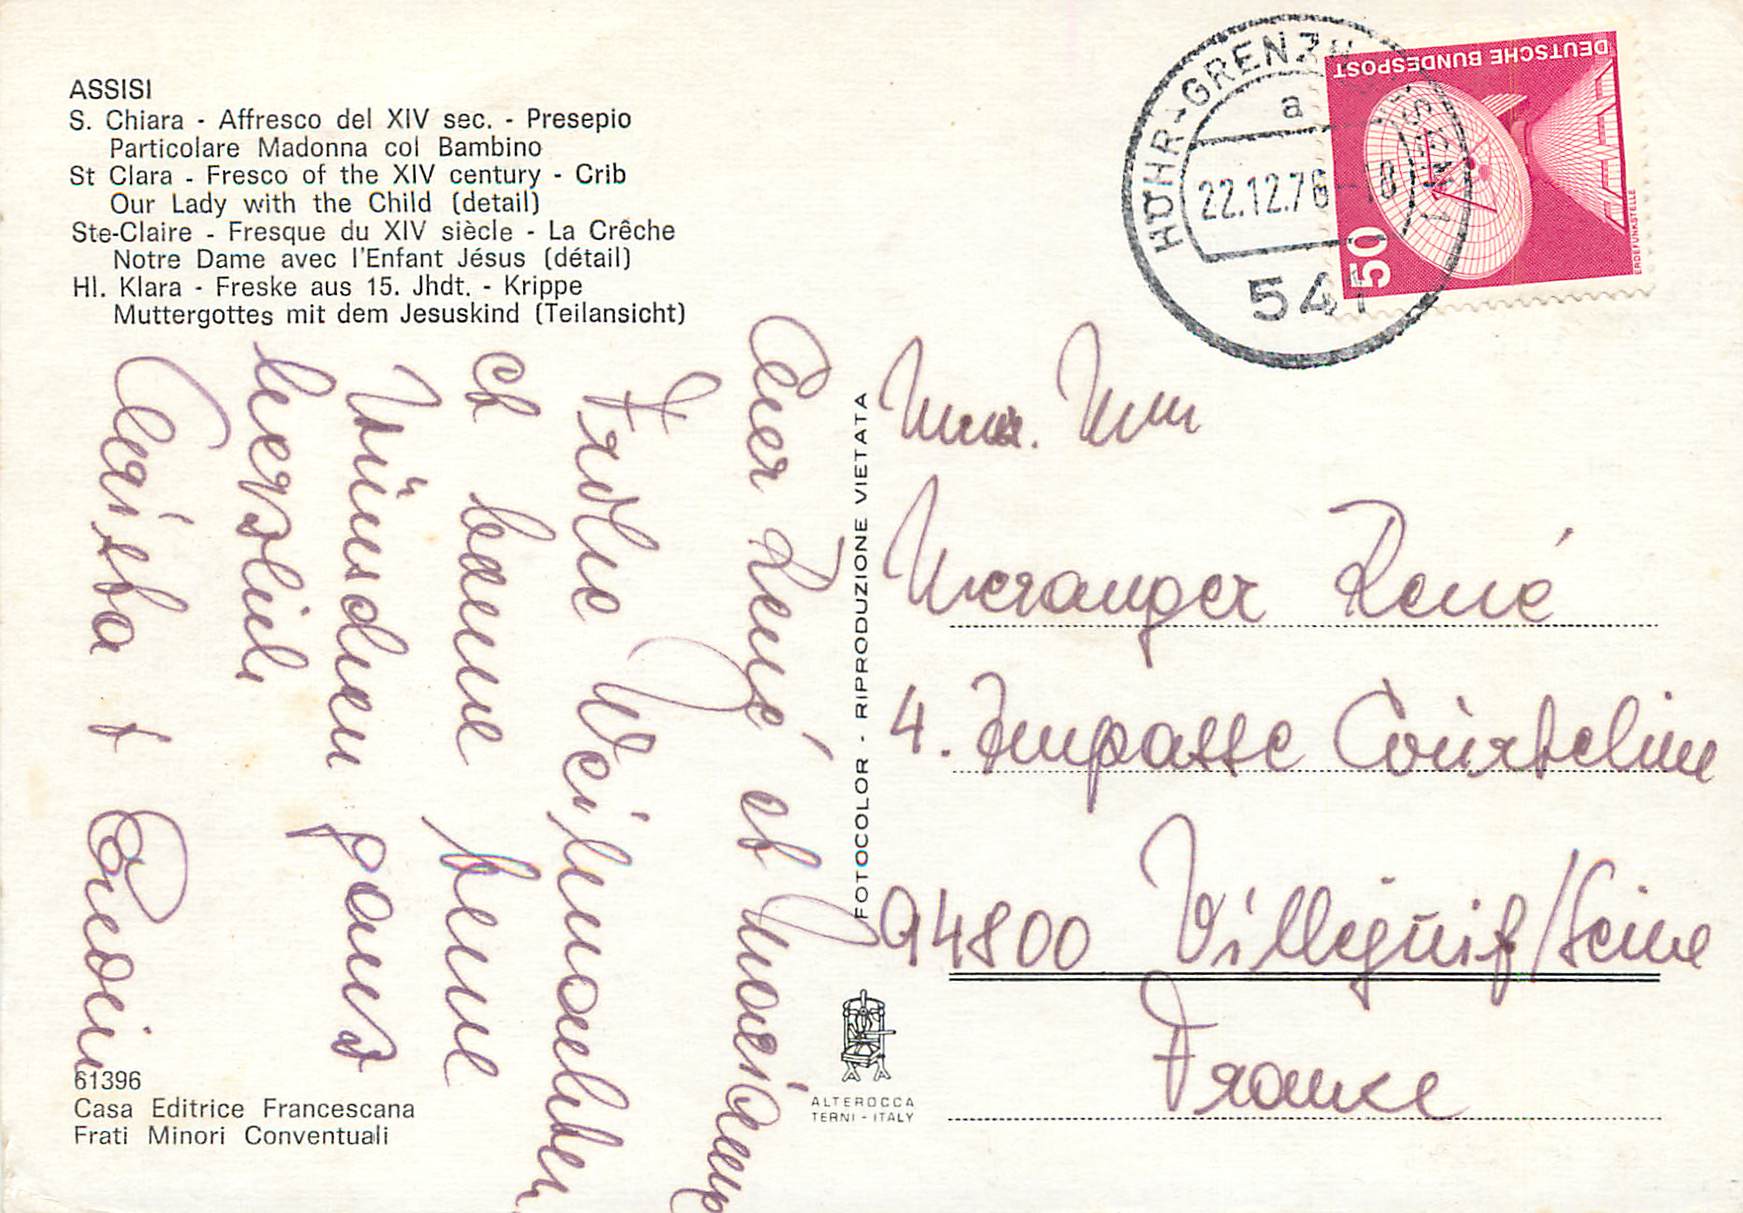 ASSISI
S. Chiara - Affresco del XIV sec. - Presepio
Particolare Madonna col Bambino
St Clara - Fresco of the XIV century - Crib
Our Lady with the Child (detail)
Ste-Claire - Fresque du XIV siècle - La Crêche
Notre Dame avec l'Enfant Jésus (détail)
Hl. Klara - Freske aus 15. Jhdt. - Krippe
Muttergottes mit dem Jesuskind (Teilansicht)
Cher René et
Frohe Weihnachten
et bonne
Wünschen ganz
herzlich
Christa +
61396
Casa Editrice Francescana
Frati Minori Conventuali
FOTOCOLOR - RIPRODUZIONE VIETATA
ALTEROCCA
TERNI - ITALY
HÖHR-GRENZH
a
22.12.76-18
541
DEUTSCHE BUNDESPOST
50
ERDEFUNKSTELLE
Meranger René
4. Impasse Courteline
94800 Villejuif/Seine
France